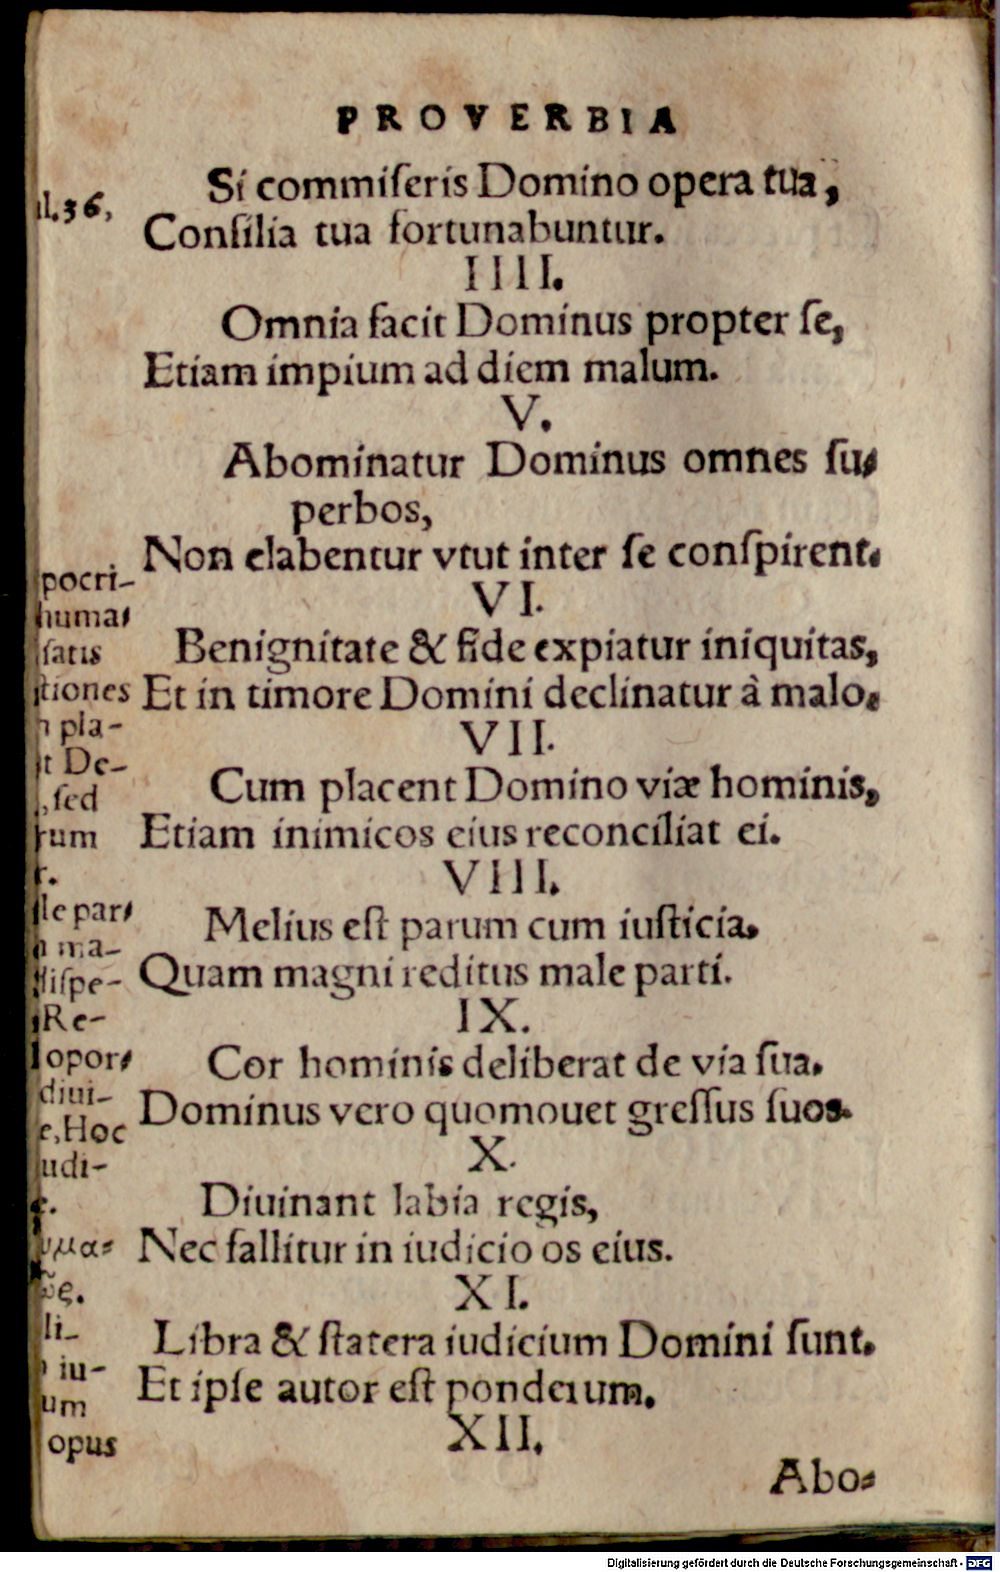 PROVERBIA
Si commiſeris Domino opera tua,
Conſilia tua fortunabuntur.
IIII.
Omnia facit Dominus propter ſe,
Etiam impium ad diem malum.
V.
Abominatur Dominus omnes ſu⸗
perbos,
Non elabentur vtut inter ſe conſpirent.
VI.
Benignitate & fide expiatur iniquitas,
Et in timore Domini declinatur à malo.
VII.
Cum placent Domino viæ hominis,
Etiam inimicos eius reconciliat ei.
VIII.
Melius eſt parum cum iuſticia.
Quam magni reditus male parti.
IX.
Cor hominis deliberat de via ſua.
Dominus vero quomouet greſſus ſuos.
X.
Diuinant labia regis,
Nec fallitur in iudicio os eius.
XI.
Libra & ſtatera iudicium Domini ſunt.
Et ipſe autor eſt ponderum.
XII.
Abo⸗
l.36,
pocri-
huma⸗
ſatis
tiones
pla-
t De-
,ſed
rum
le par⸗
ma-
diſpe-
Re-
opor⸗
diui-
e,Hoc
udi-
μα⸗
li-
iu-
um
opus
Digitalisierung gefördert durch die Deutsche Forschungsgemeinschaft - DFG